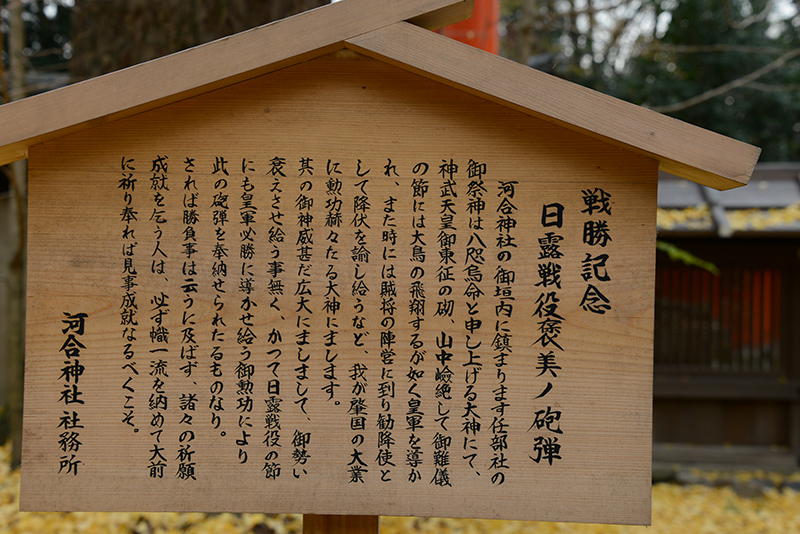 戦勝記念
日露戦役褒美ノ砲弾
河合神社の御垣内に鎮まります任部社の
御祭神は八咫烏命と申し上げる大神にて、
神武天皇御東征の砌、山中嶮絶して御難儀
の節には大鳥の飛翔するが如く皇軍を導か
れ、また時には賊将の陣営に到り勧降使と
して降伏を諭し給うなど、我が肇国の大業
に勲功赫々たる大神にまします。
其の御神威甚だ広大にましまして、御勢い
衰えさせ給う事無く、かつて日露戦役の節
にも皇軍必勝に導かせ給う御勲功により
此の砲弾を奉納せられたるものなり。
されば勝負事は云うに及ばず、諸々の祈願
成就を乞う人は、必ず幟一流を納めて大前
に祈り奉れば見事成就なるべくこそ。
河合神社 社務所